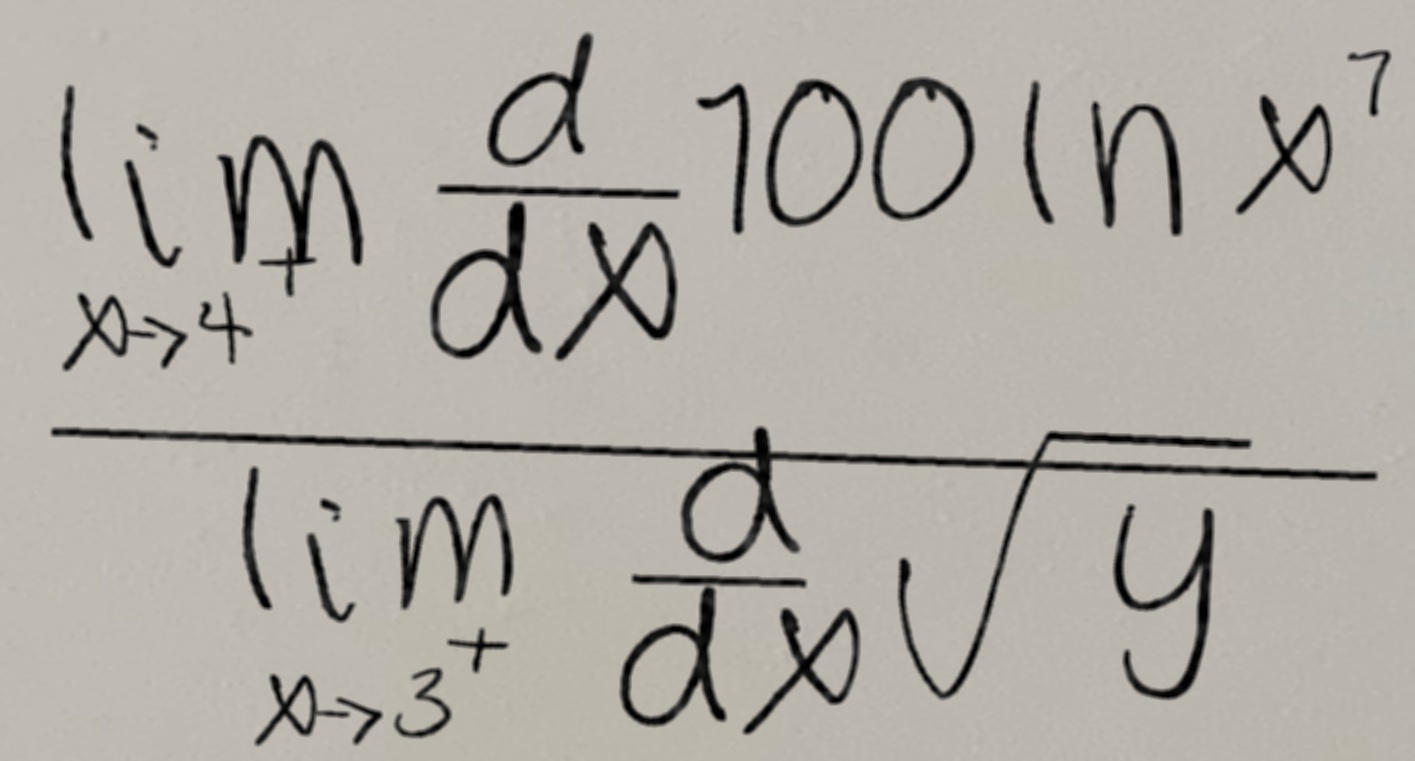 lim x→4⁺ d/dx 100 ln x⁷
lim x→3⁺ d/dx √y